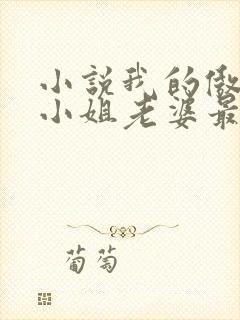 小説我的傲
小姐老婆最
葡萄